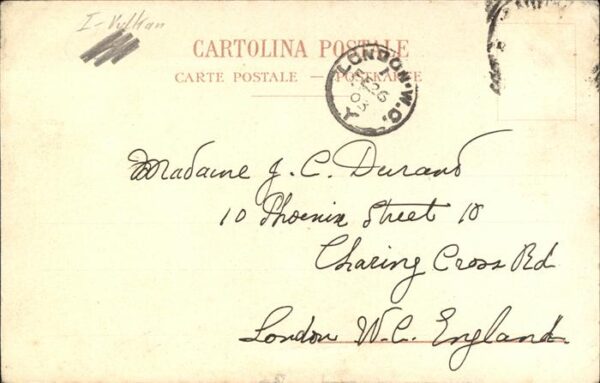 I-Vulkan
CARTOLINA POSTALE
CARTE POSTALE — POSTKARTE
LONDON. W.C.
26
03
Madame J. C. Durand
10 Phoenix Street 10
Charing Cross Rd
London W.C. England.